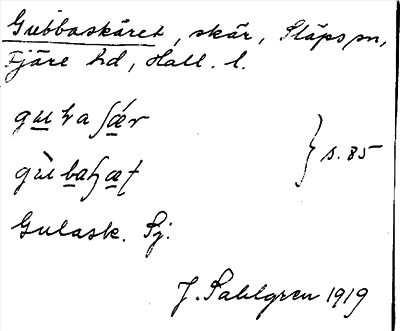 Gubbaskäret, skär, Släps sn,
Fjäre hd, Hall. l.
s. 85
Gulask. Sj.
J. Sahlgren 1919